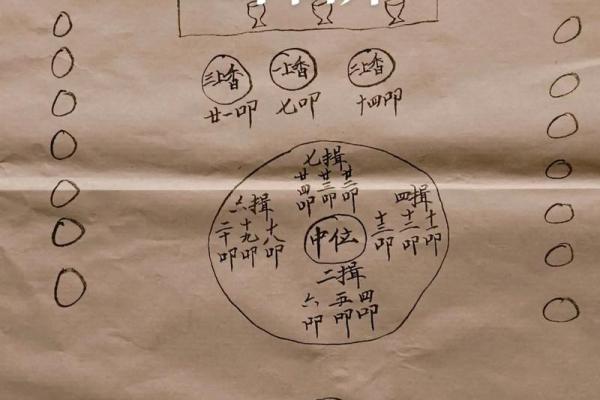 三上香 一上香 二上香
廿一叩 七叩 十四叩
七揖
廿四叩 廿三叩 廿二叩
六揖
二十叩 十九叩 十八叩
中位
四揖
十三叩 十二叩 十一叩
二揖
六叩 五叩 四叩